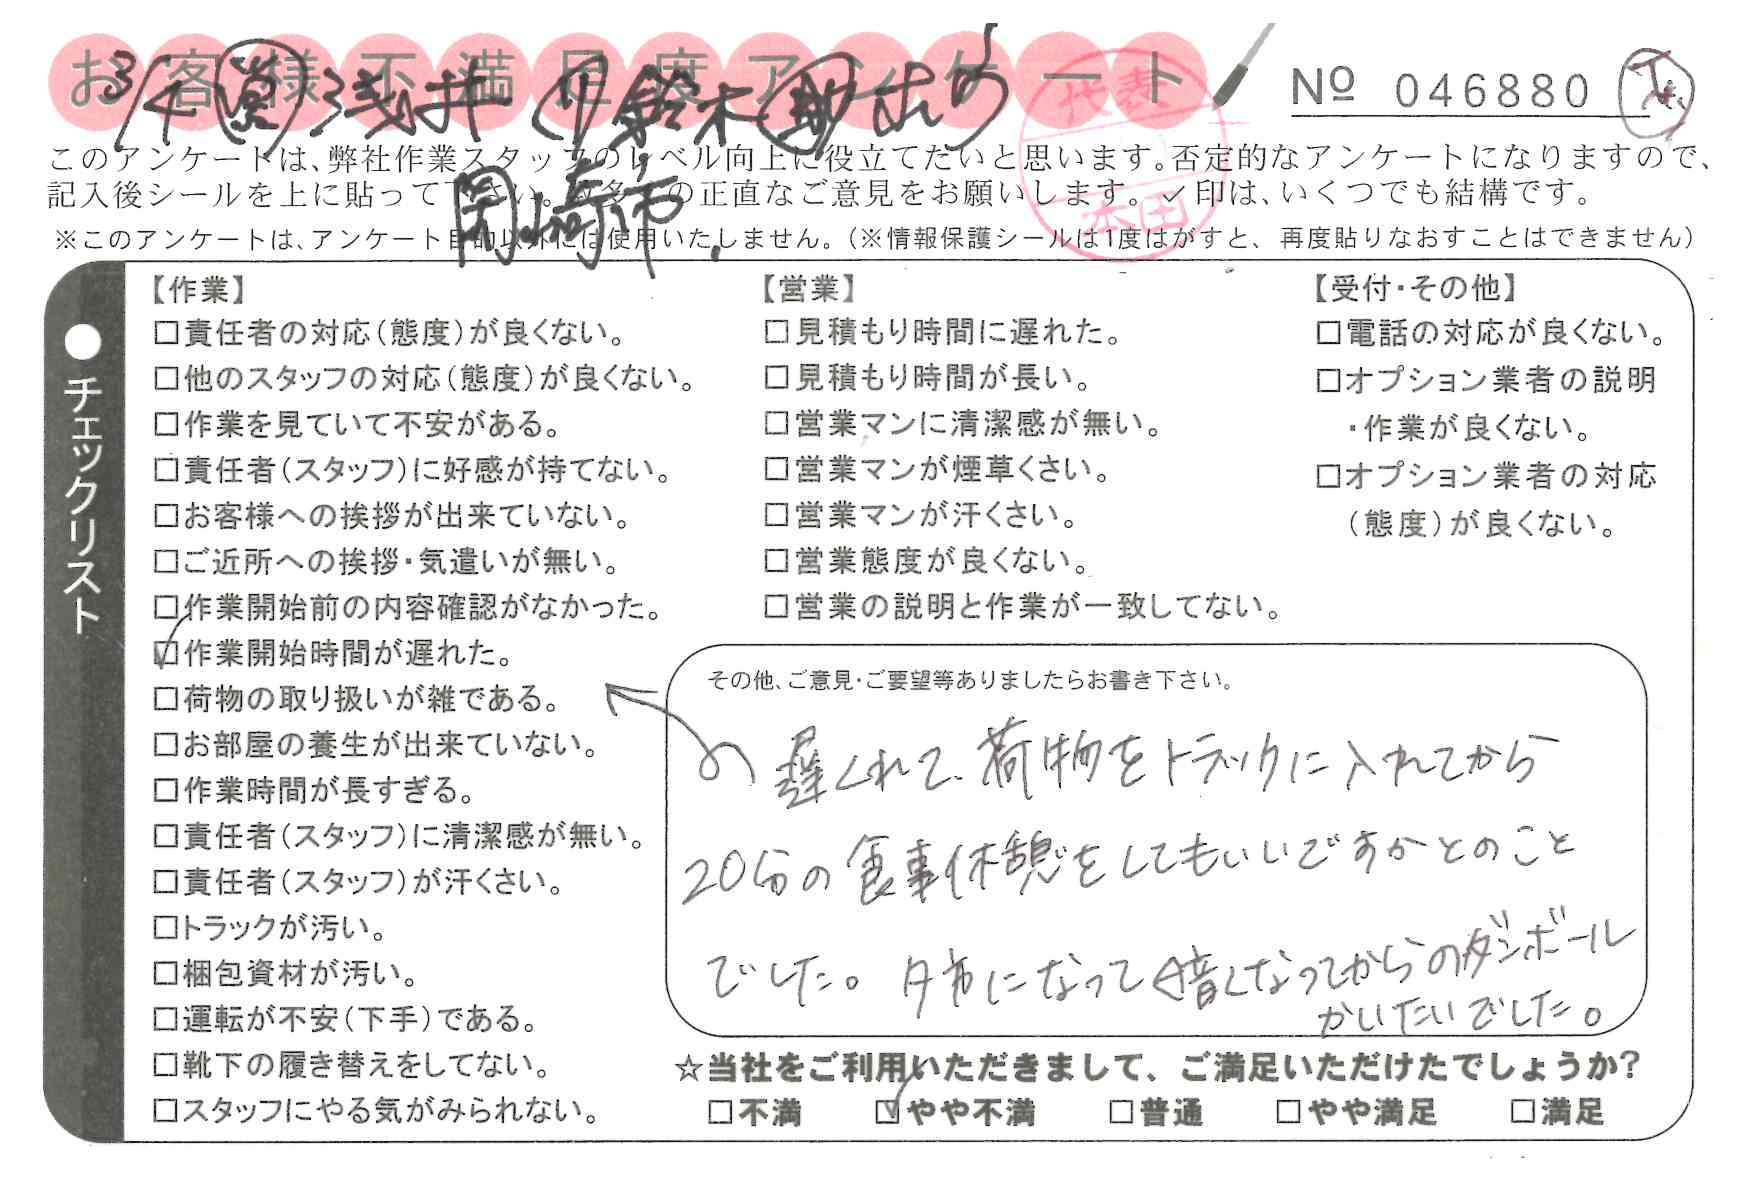 お客様不満足度アンケート
3/4 営 浅井 作 鈴木
岡崎市
代表
本田
Nº 046880
このアンケートは、弊社作業スタッフのレベル向上に役立てたいと思います。否定的なアンケートになりますので、
記入後シールを上に貼って下さい。数多くの正直なご意見をお願いします。✓印は、いくつでも結構です。
※このアンケートは、アンケート目的以外には使用いたしません。(※情報保護シールは1度はがすと、再度貼りなおすことはできません)
●チェックリスト
【作業】
□責任者の対応(態度)が良くない。
□他のスタッフの対応(態度)が良くない。
□作業を見ていて不安がある。
□責任者(スタッフ)に好感が持てない。
□お客様への挨拶が出来ていない。
□ご近所への挨拶・気遣いが無い。
□作業開始前の内容確認がなかった。
☑作業開始時間が遅れた。
□荷物の取り扱いが雑である。
□お部屋の養生が出来ていない。
□作業時間が長すぎる。
□責任者(スタッフ)に清潔感が無い。
□責任者(スタッフ)が汗くさい。
□トラックが汚い。
□梱包資材が汚い。
□運転が不安(下手)である。
□靴下の履き替えをしてない。
□スタッフにやる気がみられない。
【営業】
□見積もり時間に遅れた。
□見積もり時間が長い。
□営業マンに清潔感が無い。
□営業マンが煙草くさい。
□営業マンが汗くさい。
□営業態度が良くない。
□営業の説明と作業が一致してない。
【受付・その他】
□電話の対応が良くない。
□オプション業者の説明
・作業が良くない。
□オプション業者の対応
(態度)が良くない。
その他、ご意見・ご要望等ありましたらお書き下さい。
遅くれて、荷物をトラックに入れてから
20分の食事休憩をしてもいいですかとのこと
でした。夕方になって暗くなってからのダンボール
かいたいでした。
☆当社をご利用いただきまして、ご満足いただけたでしょうか?
□不満 ☑やや不満 □普通 □やや満足 □満足